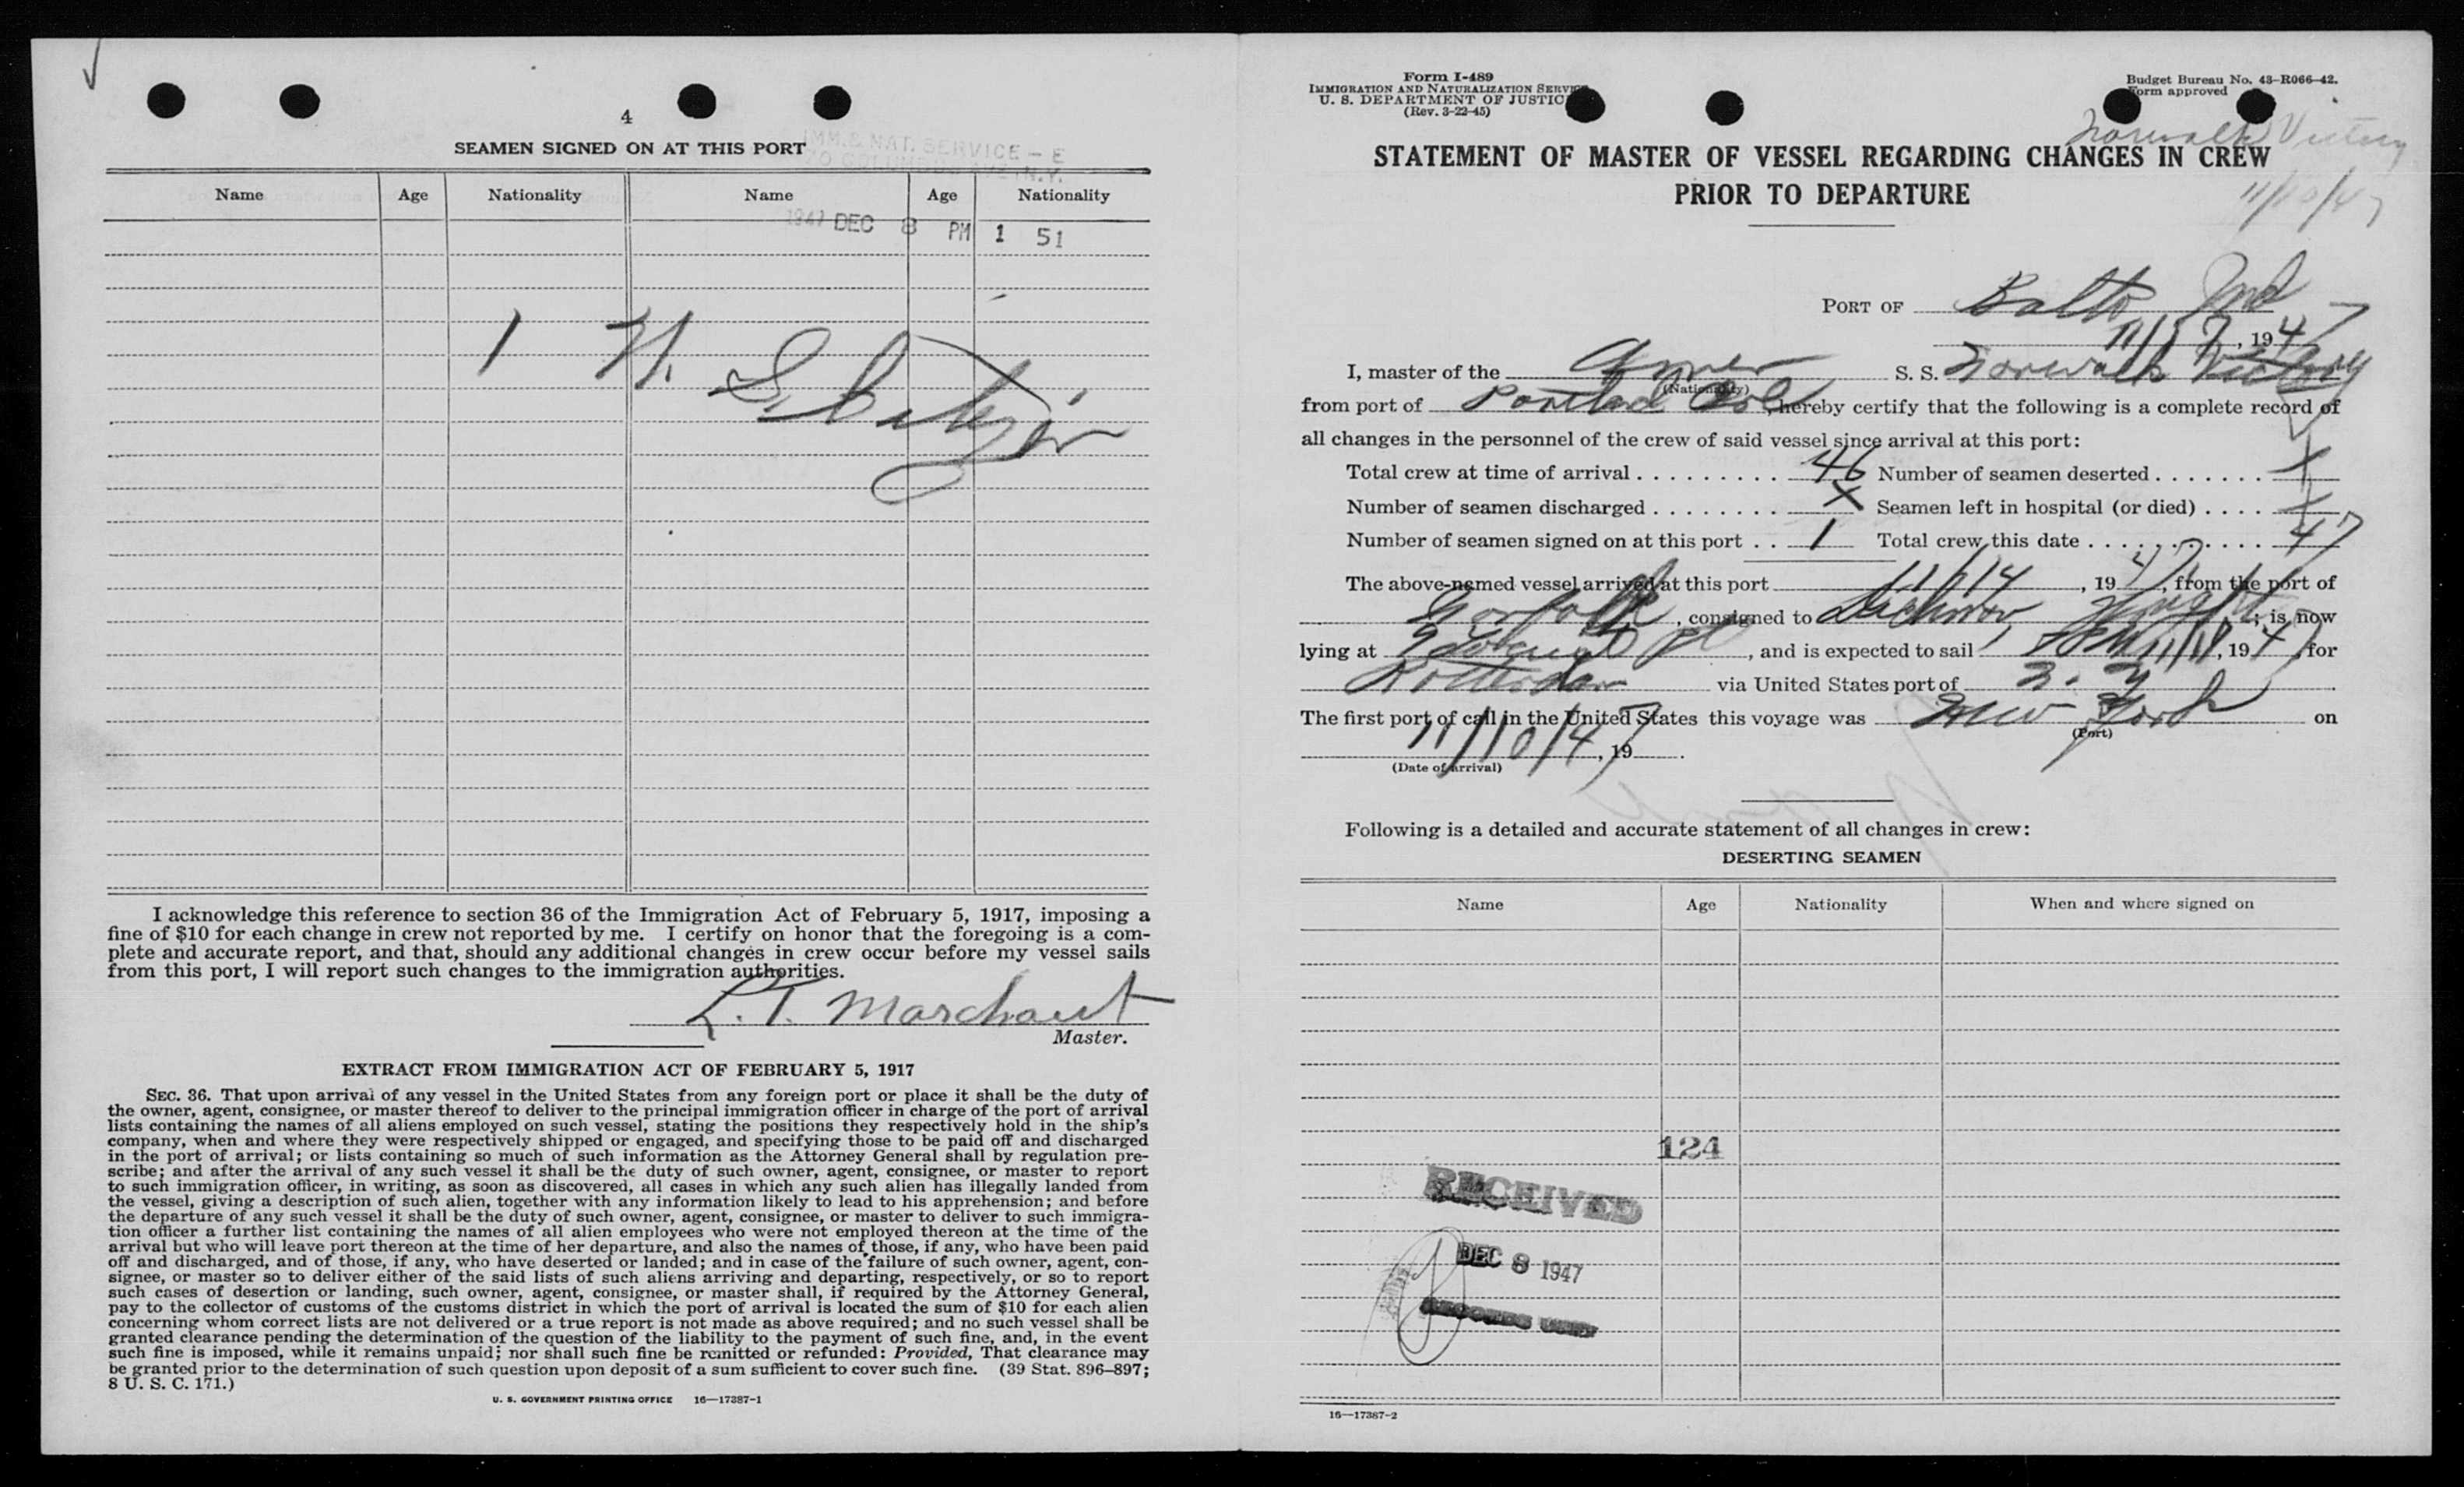 4
SEAMEN SIGNED ON AT THIS PORT
IMM. & NAT. SERVICE - E
N.Y.
Name Age Nationality Name Age Nationality
1947 DEC 8 PM 1 51
1
I acknowledge this reference to section 36 of the Immigration Act of February 5, 1917, imposing a
fine of $10 for each change in crew not reported by me. I certify on honor that the foregoing is a com-
plete and accurate report, and that, should any additional changes in crew occur before my vessel sails
from this port, I will report such changes to the immigration authorities.
L. T. Marchant
Master.
EXTRACT FROM IMMIGRATION ACT OF FEBRUARY 5, 1917
SEC. 36. That upon arrival of any vessel in the United States from any foreign port or place it shall be the duty of
the owner, agent, consignee, or master thereof to deliver to the principal immigration officer in charge of the port of arrival
lists containing the names of all aliens employed on such vessel, stating the positions they respectively hold in the ship's
company, when and where they were respectively shipped or engaged, and specifying those to be paid off and discharged
in the port of arrival; or lists containing so much of such information as the Attorney General shall by regulation pre-
scribe; and after the arrival of any such vessel it shall be the duty of such owner, agent, consignee, or master to report
to such immigration officer, in writing, as soon as discovered, all cases in which any such alien has illegally landed from
the vessel, giving a description of such alien, together with any information likely to lead to his apprehension; and before
the departure of any such vessel it shall be the duty of such owner, agent, consignee, or master to deliver to such immigra-
tion officer a further list containing the names of all alien employees who were not employed thereon at the time of the
arrival but who will leave port thereon at the time of her departure, and also the names of those, if any, who have been paid
off and discharged, and of those, if any, who have deserted or landed; and in case of the failure of such owner, agent, con-
signee, or master so to deliver either of the said lists of such aliens arriving and departing, respectively, or so to report
such cases of desertion or landing, such owner, agent, consignee, or master shall, if required by the Attorney General,
pay to the collector of customs of the customs district in which the port of arrival is located the sum of $10 for each alien
concerning whom correct lists are not delivered or a true report is not made as above required; and no such vessel shall be
granted clearance pending the determination of the question of the liability to the payment of such fine, and, in the event
such fine is imposed, while it remains unpaid; nor shall such fine be remitted or refunded: Provided, That clearance may
be granted prior to the determination of such question upon deposit of a sum sufficient to cover such fine. (39 Stat. 896–897;
8 U. S. C. 171.)
U. S. GOVERNMENT PRINTING OFFICE 16—17387-1
Form I-489
IMMIGRATION AND NATURALIZATION SERVICE
U. S. DEPARTMENT OF JUSTIC
(Rev. 3-22-45)
Budget Bureau No. 43-R066-42.
Form approved
Norwalk Victory
11/10/47
STATEMENT OF MASTER OF VESSEL REGARDING CHANGES IN CREW
PRIOR TO DEPARTURE
PORT OF Balto Md
11/17, 1947
I, master of the Amer S. S. Norwalk Victory
(Nationality)
from port of Portland, hereby certify that the following is a complete record of
all changes in the personnel of the crew of said vessel since arrival at this port:
Total crew at time of arrival 46 Number of seamen deserted X
Number of seamen discharged X Seamen left in hospital (or died) X
Number of seamen signed on at this port 1 Total crew this date 47
The above-named vessel arrived at this port 11/14, 1947, from the port of
Norfolk, consigned to; is now
lying at, and is expected to sail 11/18, 1947, for
Rotterdam via United States port of N. Y.
The first port of call in the United States this voyage was New York on
(Port)
11/10/47, 19
(Date of arrival)
Following is a detailed and accurate statement of all changes in crew:
DESERTING SEAMEN
Name Age Nationality When and where signed on
124
RECEIVED
DEC 8 1947
RECORDS UNIT
16—17387-2